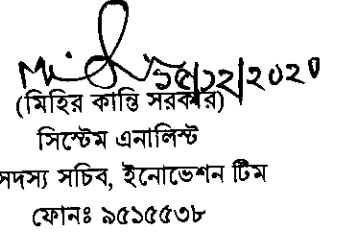 ১৫/১২/২০২০
(মিহির কান্তি সরকার)
সিস্টেম এনালিস্ট
সদস্য সচিব, ইনোভেশন টিম
ফোনঃ ৯৫১৫৫৩৮